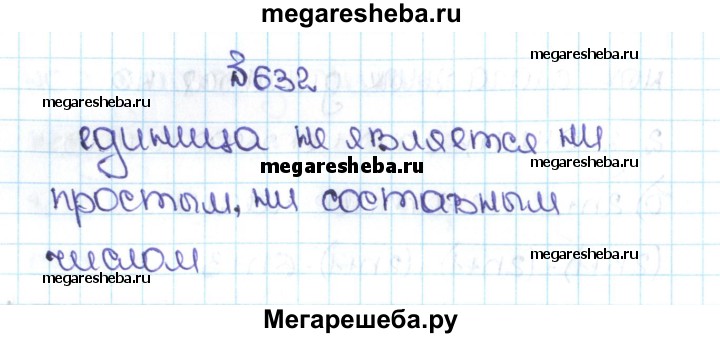 megaresheba.ru
№632
megaresheba.ru
megaresheba.ru
единица не является ни
megaresheba.ru
megaresheba.ru
простым, ни составным
числом
megaresheba.ru
megaresheba.ru
Мегарешеба.ру